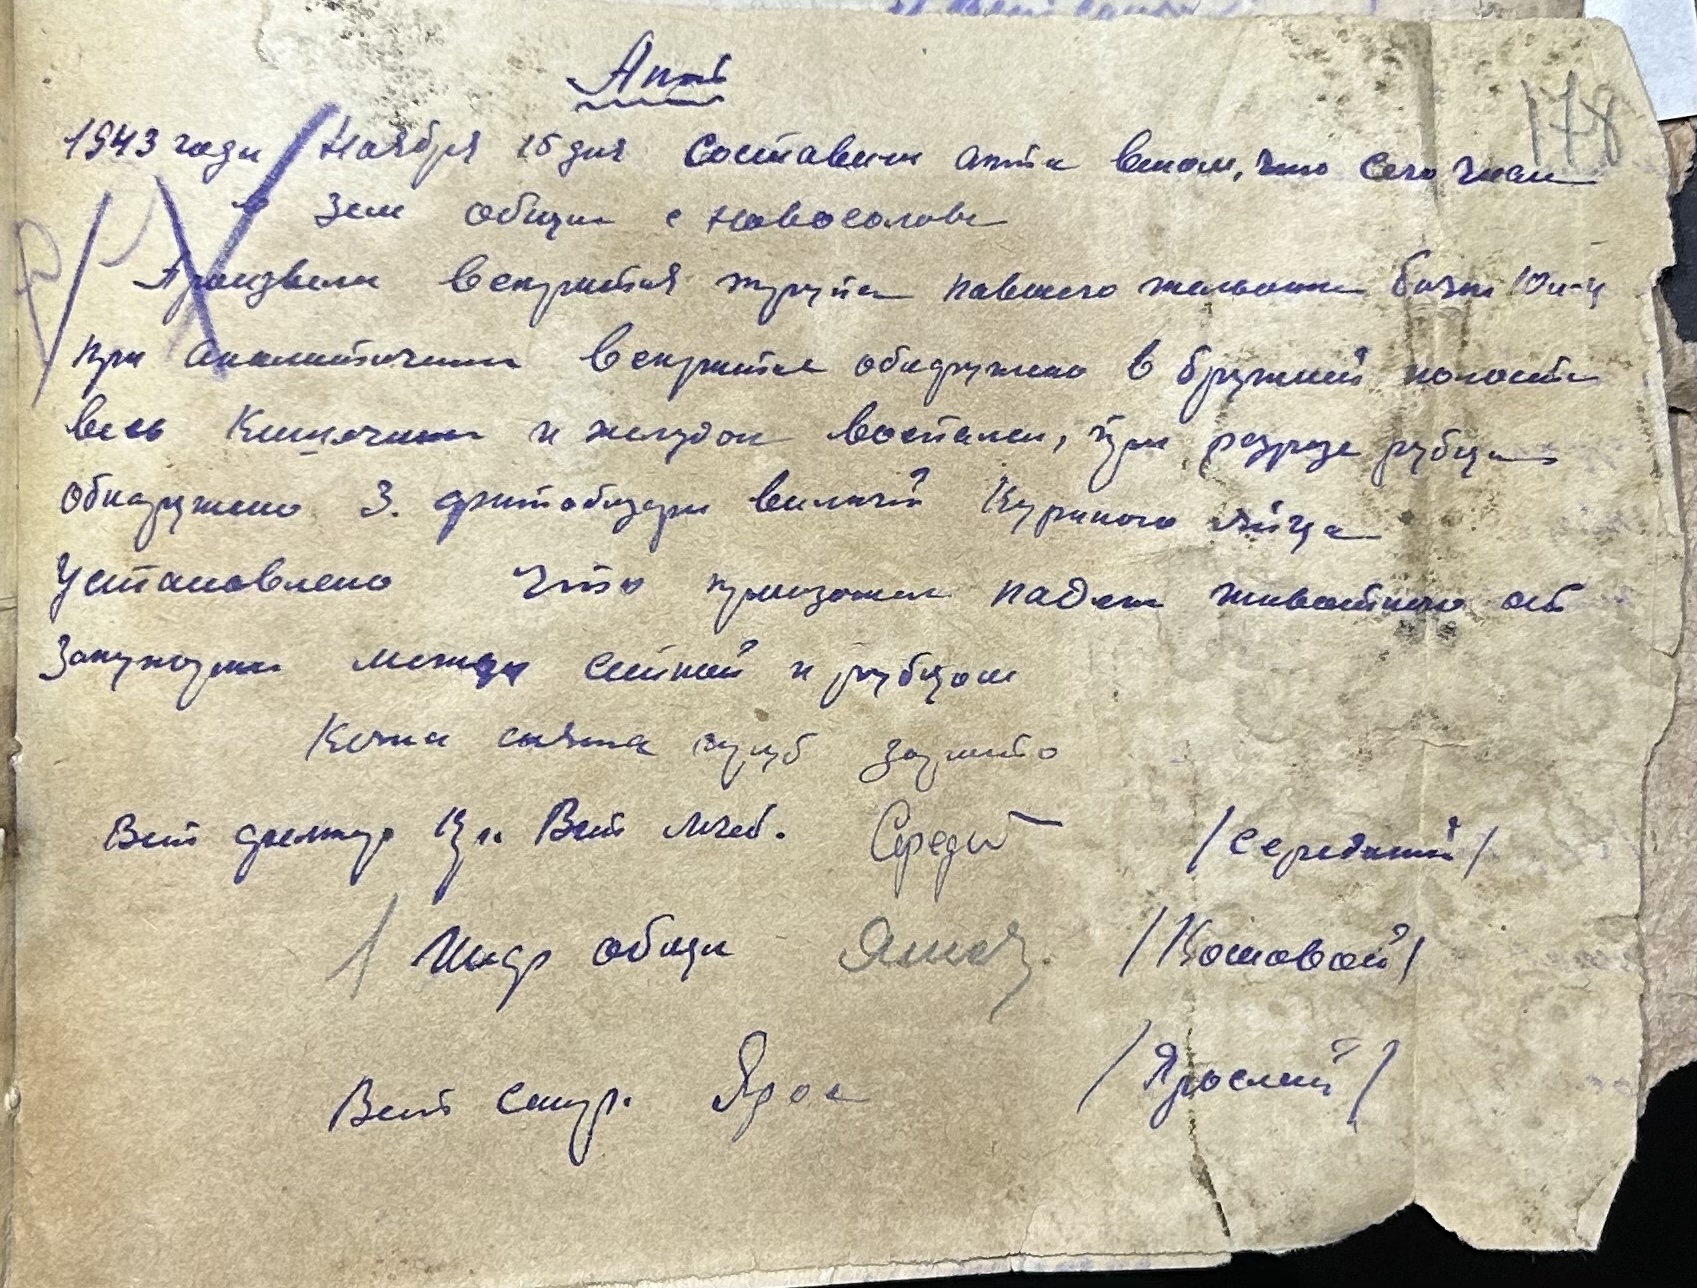 Акт
178
1943 года Ноября 15 дня составили акта втом, что сего числа
в Зем общине с Новосоловка
Произвели вскрытия трупа павшего животного бычка 10 м-ц
при вскрытие обнаружено в брушной полости
весь Кишечник и желудок воспален, при разрезе рубца
обнаружено 3. фитобизари величиной Куриного яйца
Установлено что произошел падеж животного от
Закупорки между сеткой и рубцом
Кожа снята труп зарыто
Вет фельдшер Вет лечеб. Серед /Середний/
общин /Кошовой/
Вет санит. Ярос /Ярослий/